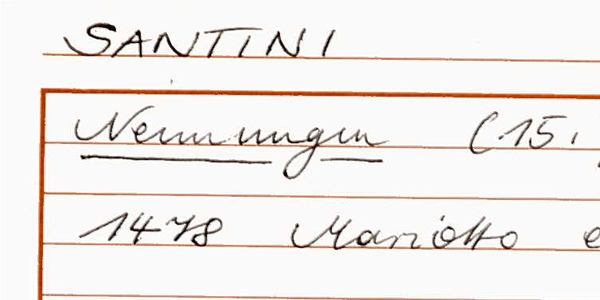 SANTINI
Nennungen (15.
1478 Mariotto e